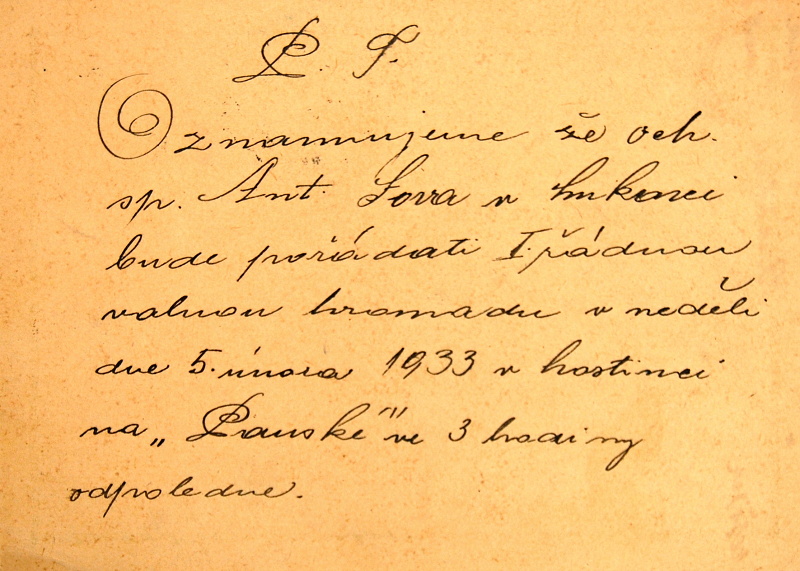 P. T.
Oznamujeme že och.
sp. Ant. Sova v Lukavci
bude pořádati I. řádnou
valnou hromadu v neděli
dne 5. února 1933 v hostinci
na „Panské" ve 3 hodiny
odpoledne.